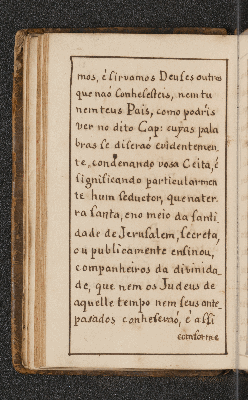 mos, é sirvamos Deuses outros
que naó Conhesesteis, nem tu
nem teus Pais, como podris
ver no dito Cap: cujas pala
bras se diseraó evidentemen
te, condenando vosa Ceita, é
significando particularmen
te hum seductor, que na ter
ra santa, e no meio da santi
dade de Jerusalem, secreta,
ou publicamente ensinou,
companheiros da divinida
de, que nem os Judeus de
aquelle tempo nem seus ante
pasados conheseraó, é assi
comforme